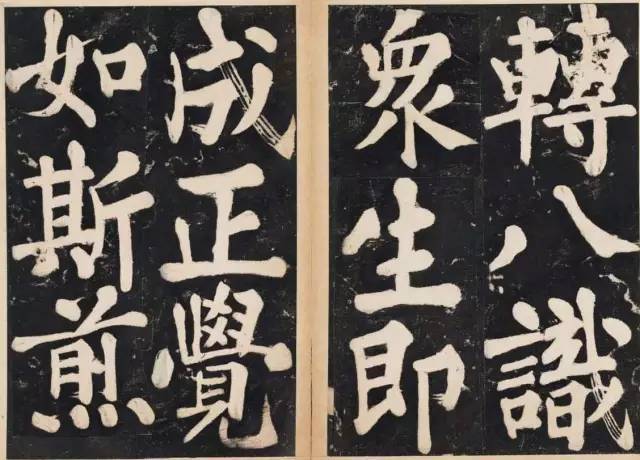 轉八識
衆生即
成正覺
如斯煎